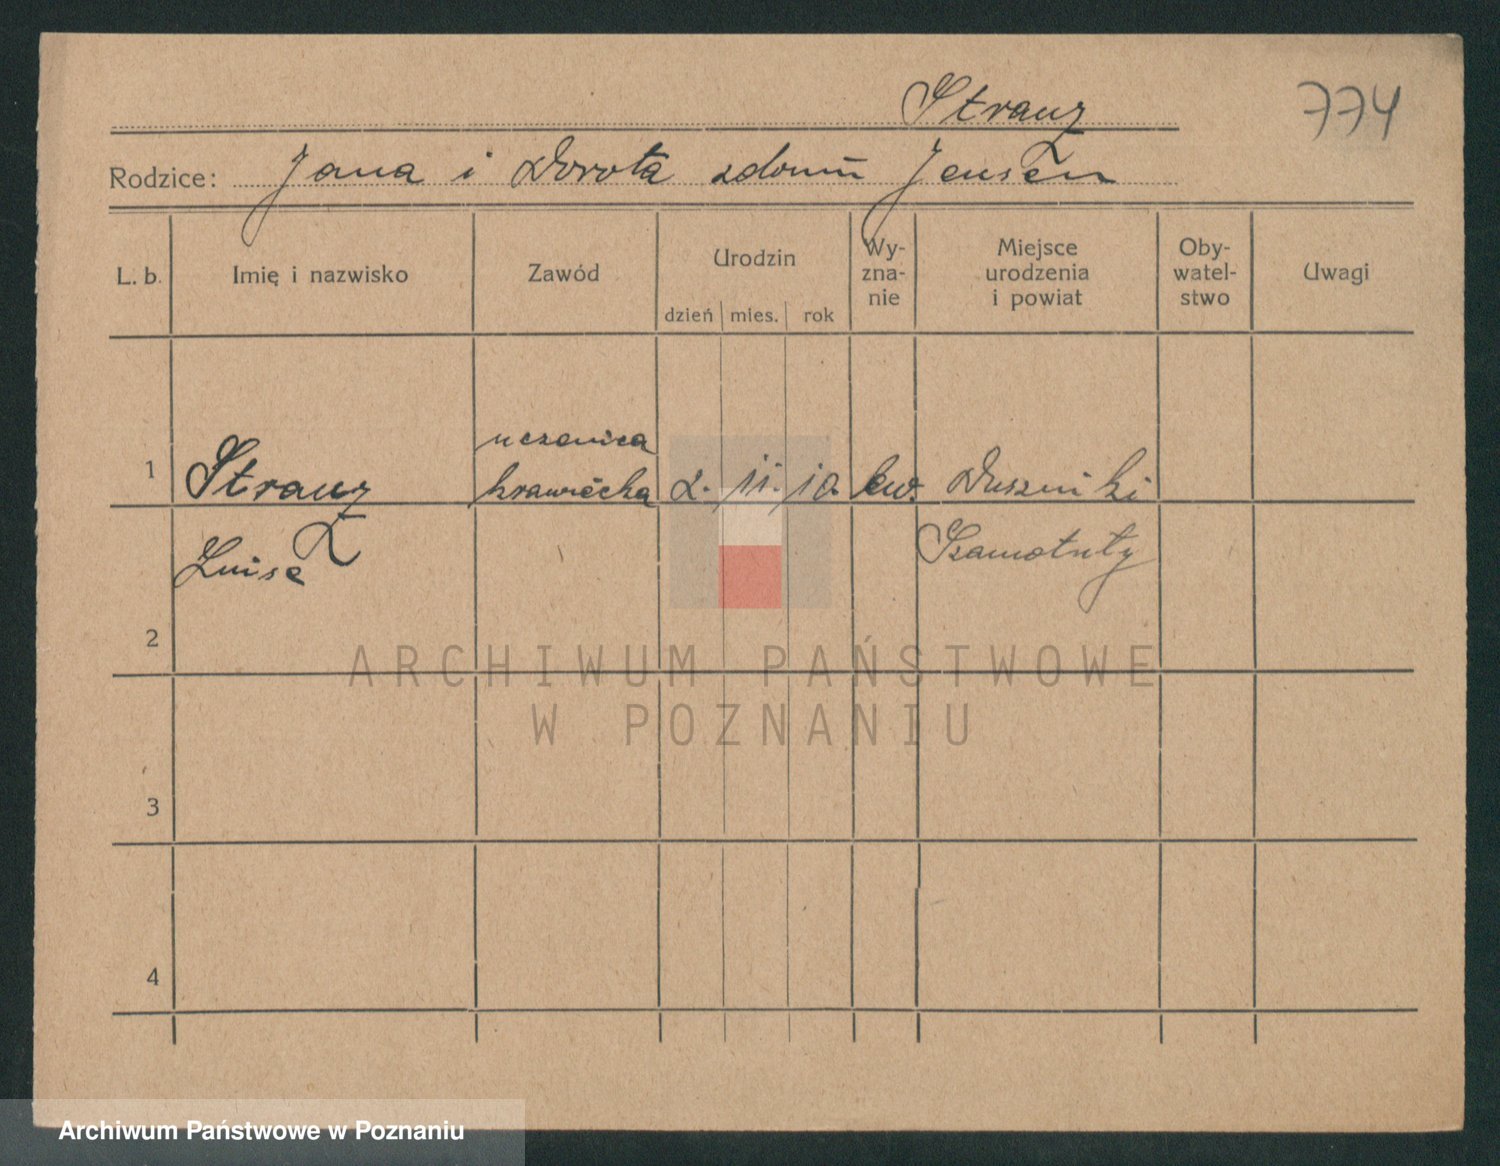 Strauz
774
Rodzice: Jana i Dorota zdomu Jensen
L. b.
Imię i nazwisko
Zawód
Urodzin
dzień mies. rok
Wy-
zna-
nie
Miejsce
urodzenia
i powiat
Oby-
watel-
stwo
Uwagi
1
Strauz
Luise
uczenica
krawiecka
2. 11. 10.
ew.
Duszniki
Szamotuły
2
3
4
ARCHIWUM PAŃSTWOWE
W POZNANIU
Archiwum Państwowe w Poznaniu